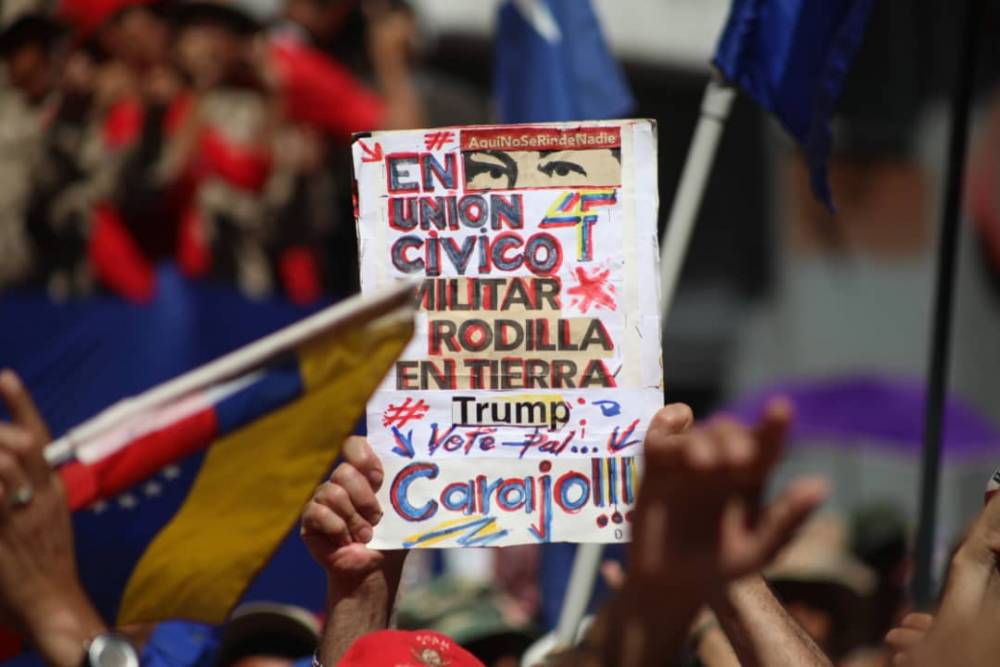 # AquiNoSeRindeNadie
EN
UNION 4F
CÍVICO
MILITAR
RODILLA
EN TIERRA
# Trump
Vete pal...
Carajo!!!